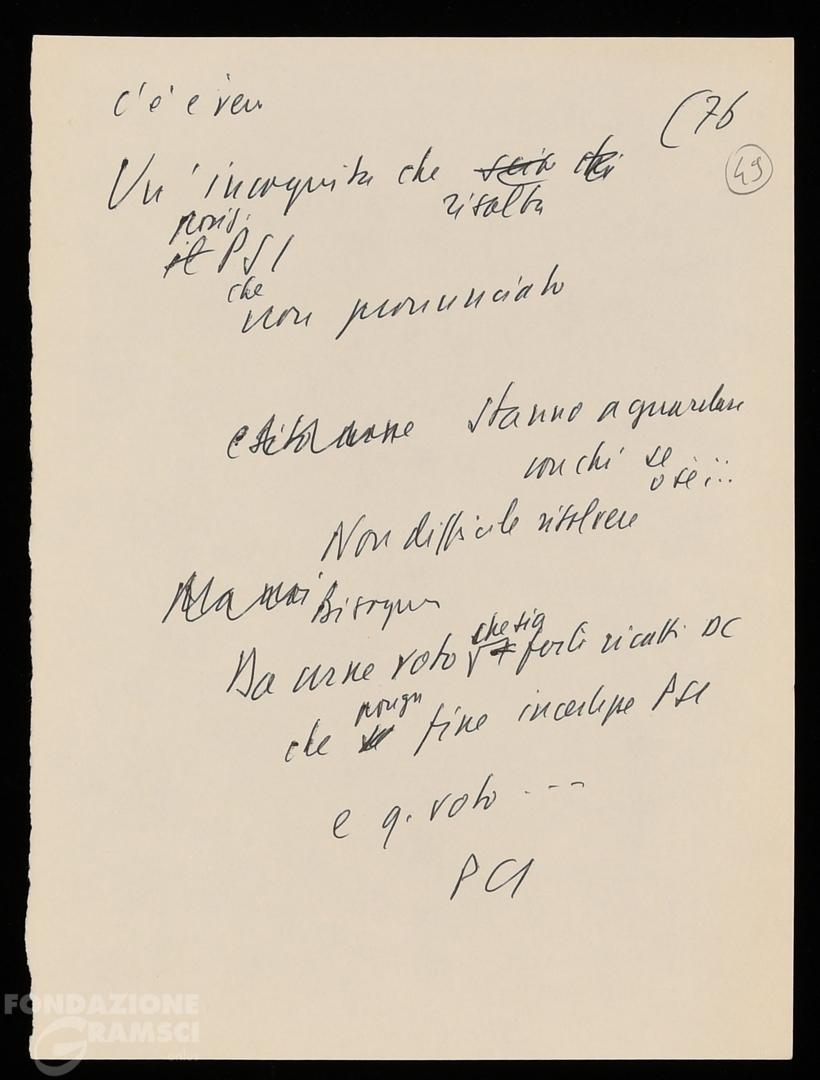 c'é é vero
(76
49
Un'incognita che risolta
posiz.
PSI
che
non pronunciato
stanno a guardare
con chi se
o se ...
Non difficile risolvere
Bisogna
Da urne voto che sia forti ricatti DC
che ponga fine incertezze PSI
e q. voto ...
PCI
FONDAZIONE
GRAMSCI
onlus